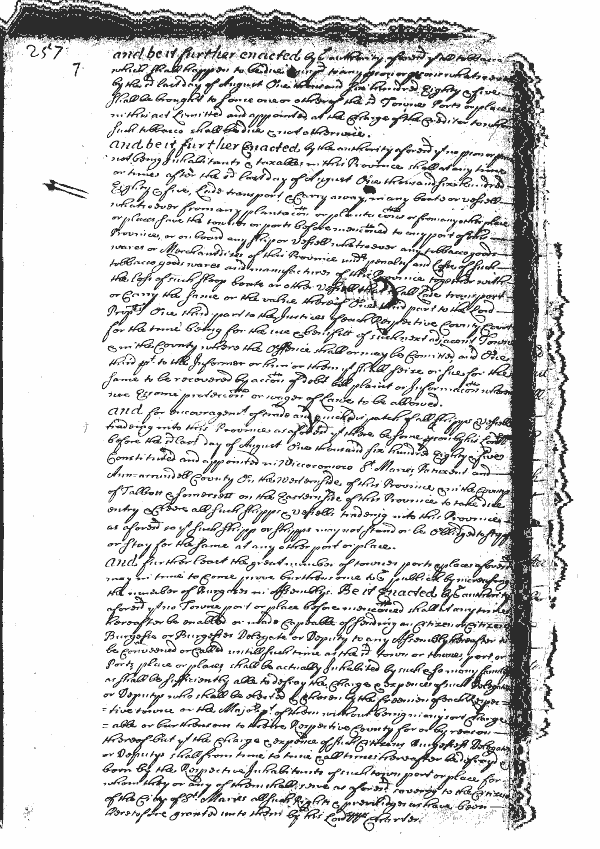 257
7
and be it further enacted by authority aforesd all tobacco
which shall happen to be due to any person or persons whatsoever
by the sd last day of August One thousand six hundred Eighty & five
shall be brought to some one or other of the sd Townes Ports or places
in this act Limitted and appointed at the Charge of the Creditor to whom
such tobacco shall be due & not otherwise.
And be it further Enacted by the authority aforesd yt no person or persons
not being Inhabitants & taxables in this Province shall at any time
or times after the sd last day of August One thousand six hundred
Eighty & five, Lade transport or Carry away, in any boate or vessell
whatsoever from any plantacon or plantacons or from any other place
or places save the townes or ports before menconed to any part of this
Province, or on board any ship or vessell whatsoever any tobaccos goods
wares or Merchandizes of this Province undr penalty and Losse of such
tobaccos goods wares and manufactures of this Province together with
the Loss of such sloop boate or other vessell that shall Lade transport
or Carry the same or the value thereof One third part to the Lord
Propry One third part to the Justices of such Respective County Court
for the time being for the use & benefitt of such next adjacent Towne
& in the County where the Offence shall or may be Comitted and One
third pt to the Informer or him or them yt shall seize or sue for the
same to be recovered by accon of debt bill plaint or Informacon wherein
noe Essoine proteccon or wager of Law to be allowed.
And for encouragemt of trade and quicker dispatch of all shipps & vessells
tradeing into this Province as aforesd yt there be some proon by his Lordp
before the sd last day of August One thousand six hundred Eighty & five
Constituted and appointed in Wiccocomoco St Maries Patuxent and
Ann-arrundell County On the Western side of this Province & in the County
of Talbott & Somersett on the Eastern side of this Province to take due
entry & cleere all such shipps & vessells tradeing into this Province
as aforesd so yt such shipp or shipps may not stand or be Obliged to stopp
or stay for the same at any other port or place.
And further least the great number of townes ports & places aforesd
may in time to Come prove burthensome to ye publick by increasing
the number of Burgesses in Assemblys. Be it Enacted by authority
aforesd yt no Towne port or place before menconed shall at any time
hereafter be enabled or made Capable of sending a Citizen or Citizens
Burgesse or Burgesses Delegate or Deputy to any Assembly hereafter to
be Convened or Called untill such time as the sd town or townes, port, or
Ports, place or places shall be actually Inhabited by such & so many familys
as shall be sufficiently able to defray the Charge & expences of such Delegates
or Deputys who shall be elected & chosen by the freemen of such respec-
=tive towne or the Majority of them without being in any sort charge-
=able or burthensom to the Respective County for or by reason
thereof but yt the Charge & expence of such Citizens Burgesses Delegates
or Deputys shall from time to time & all times hereafter be defrayed &
born by the Respective Inhabitants of such town port or place for
whom they or any of them shall serve as aforesd, saveing to the Citizens
of the City of St Maries all such Rights & priviledges as have been
heretofore granted unto them by his Lordspps Charter.